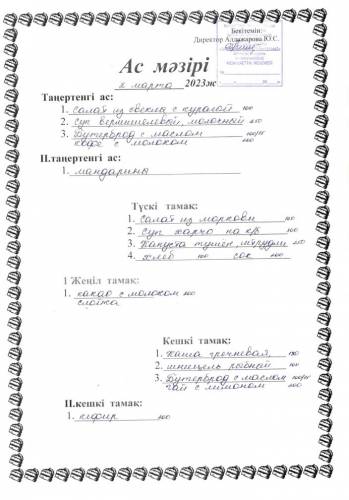 Бекітемін:
Директор Алдажарова Ю.С.
Ас мәзірі
марта 2023ж
Таңертенгі ас:
1. Салат из свеклы с курагой 100
2. Суп вермишелевый, молочный 250
3. Бутерброд с маслом
кофе с молоком
II.таңертенгі ас:
1. мандарины
Түскі тамақ:
1. Салат из моркови 100
2. Суп харчо на к/б
3. Капуста тушен.
4. хлеб 100 сок
1 Жеңіл тамақ:
1. какао с молоком 200
слойка
Кешкі тамақ:
1. Каша гречневая, 150
2. шницель рыбный 100
3. Бутерброд с маслом
чай с лимоном 200
II.кешкі тамақ:
1. кефир 200